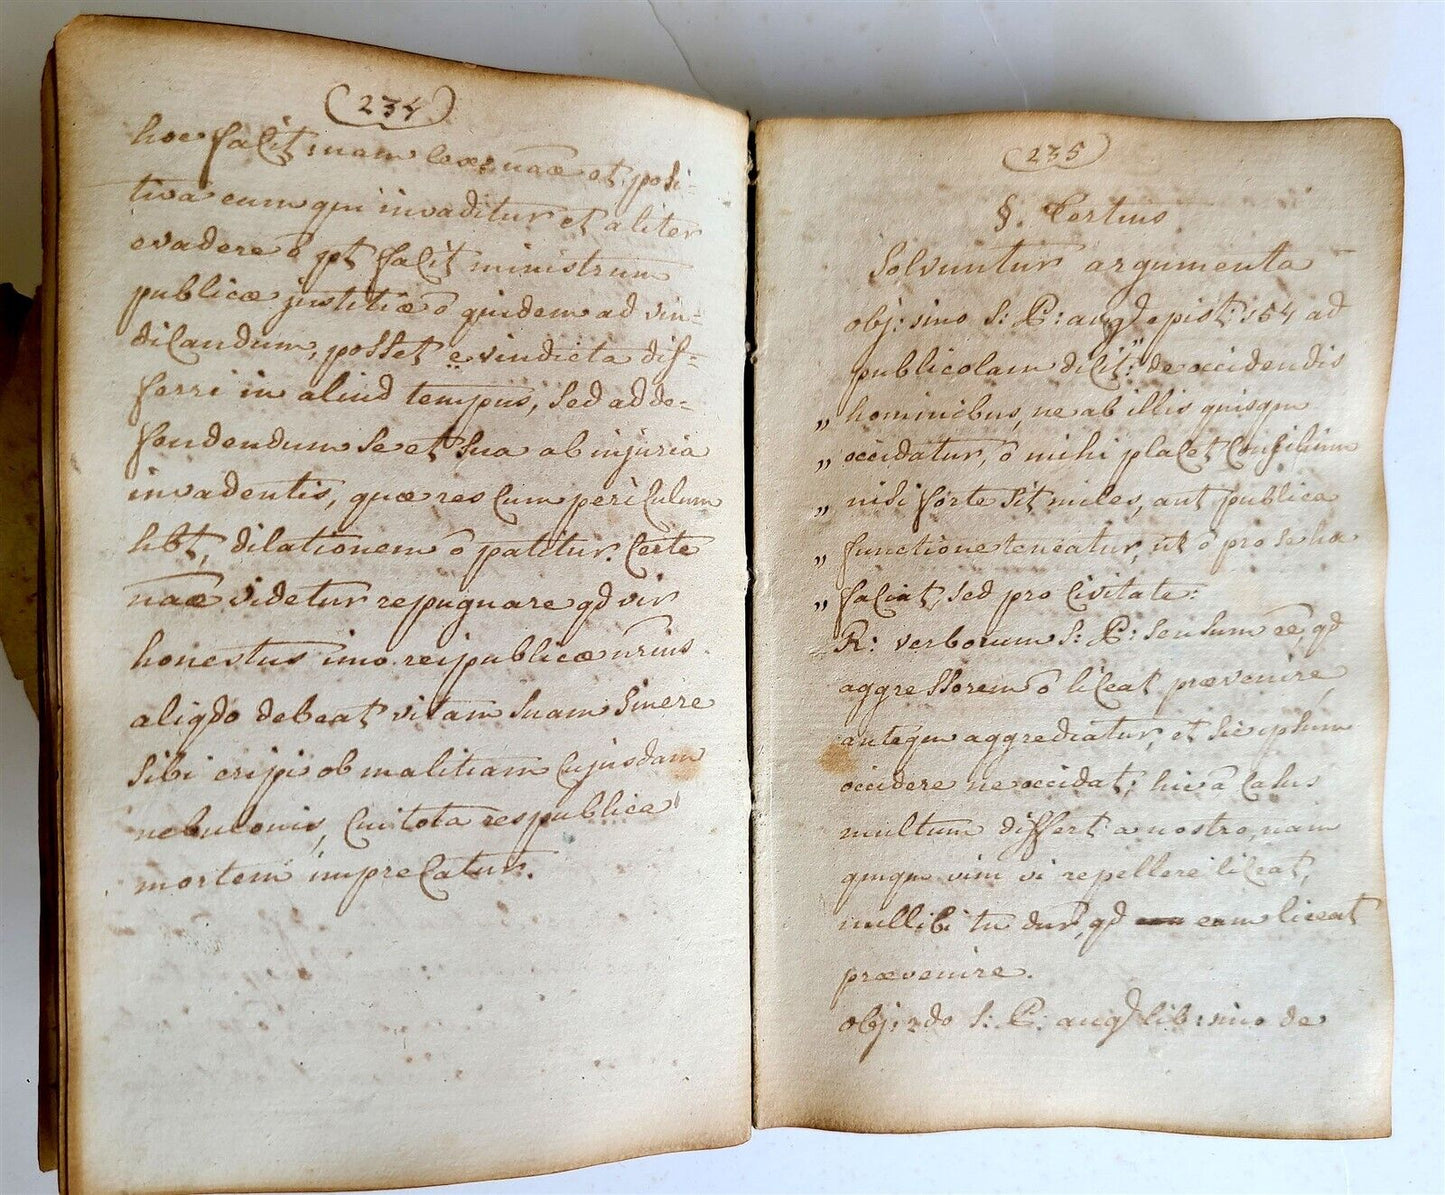 (234)
hoc facit nam lex nāæ et posi=
tiva eum qui invaditur et aliter
evadere ō pt facit ministrum
publicæ justitiæ ō quidem ad vin=
dicandum, posset e vindicta dif=
ferri in aliud tempus, sed ad de=
fendendum se et sua ab injuria
invadentis, quæ res cum periculum
hbt, dilationem ō patitur. Certe
nāæ videtur repugnare qd vir
honestus imo reipublicæ
aliqdo debeat vitam suam sinere
sibi eripi ob malitiam cujusdam
nebulonis, cui tota respublica
mortem imprecatur.
(235)
§. Tertius
Solvuntur argumenta
obj: 1mo S: P: aug epist: 154 ad
publicolam dicit: "de occidendis
„ hominibus, ne ab illis quisqm
„ occidatur, ō mihi placet Consilium
„ nisi forte sit miles, aut publica
„ functione teneatur, ut ō pro se hoc
„ faciat, sed pro Civitate:
R: verborum S: P: sensum ēē, qd
aggressorem ō liceat prævenire,
anteqm aggrediatur, et sic ipsum
occidere ne occidat; hic ā Casus
multum differt a nostro, nam
qmqm vim vi repellere liceat,
nullibi tn dur, qd eam liceat
prævenire.
obj: 2do S: P: aug lib: 1mo de